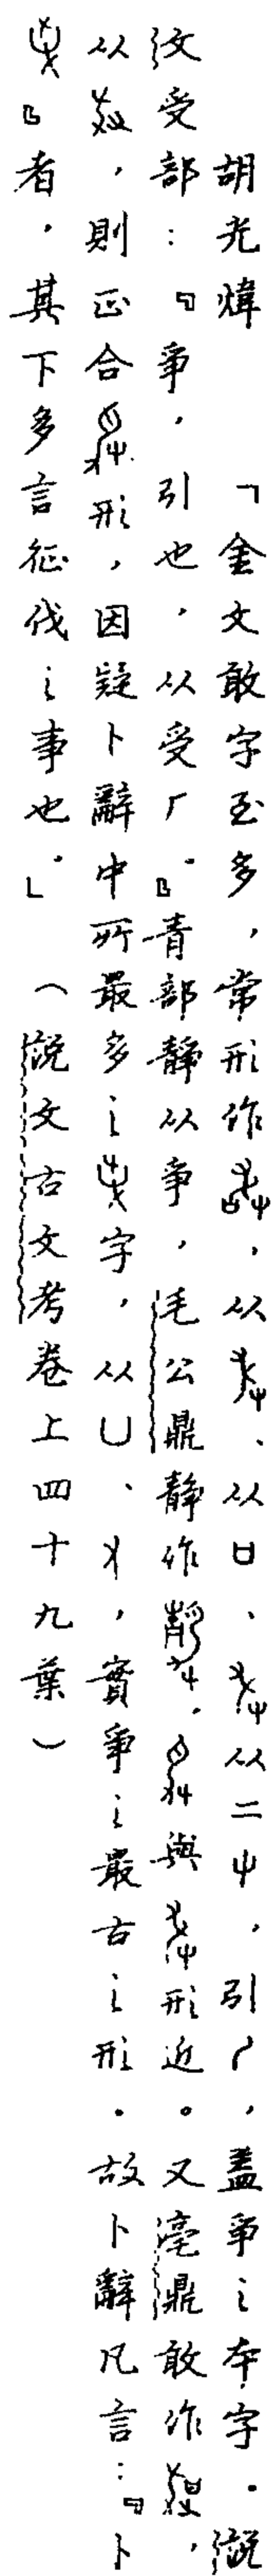 胡光煒 「金文敢字至多，常形作，从、从口、从二，引，蓋爭之本字．說
文受部：『爭，引也，从受厂。』青部靜从爭，毛公鼎靜作，與形近。又亳鼎敢作，
从，則正合形，因疑卜辭中所最多之字，从凵、，實爭之最古之形．故卜辭凡言：『卜
』者，其下多言征伐之事也。」（說文古文考卷上四十九葉）